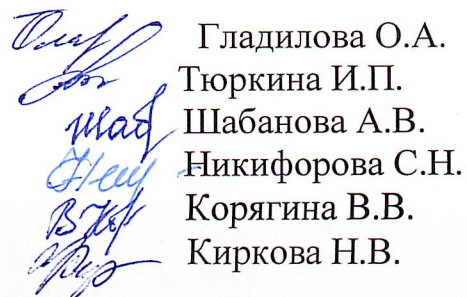 Гладилова О.А.
Тюркина И.П.
Шабанова А.В.
Никифорова С.Н.
Корягина В.В.
Киркова Н.В.